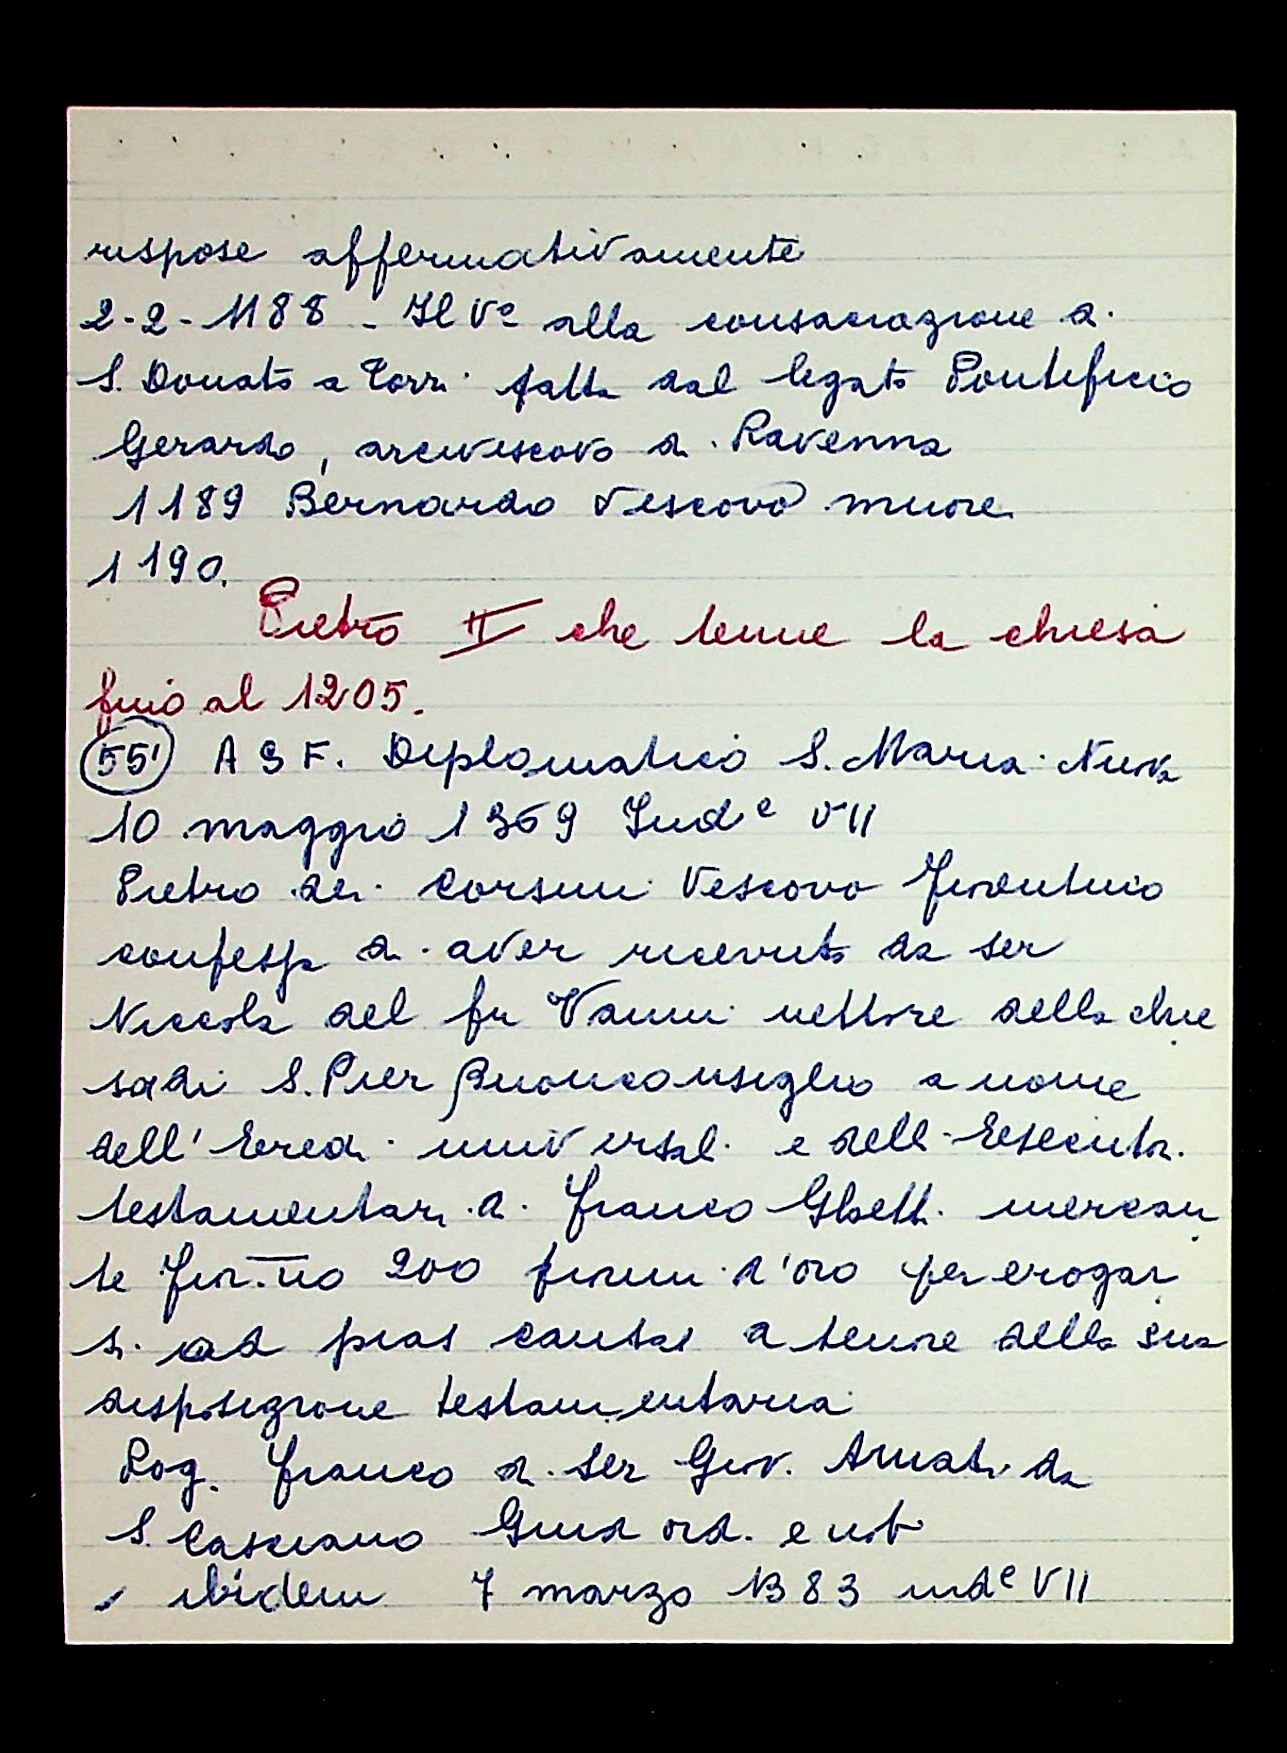 rispose affermativamente
2-2-1188 - Il Vo alla consacrazione di
S. Donato a Torri fatta dal legato Pontificio
Gerardo, arcivescovo di Ravenna
1189 Bernardo Vescovo muore
1190.
Pietro II che tenne la chiesa
fino al 1205.
55 ASF. Diplomatico S. Maria Nuova
10 maggio 1369 Inde VII
Pietro dei Corsini Vescovo fiorentino
confessa di aver ricevuto da ser
Niccola del fu Vanni rettore della chie
sa di S. Pier Buonconsiglio a nome
dell' Eredi universal. e dell. Esecutr.
testamentari di Franco Ghett. mercan
te fior.no 200 fiorini d'oro per erogar
si ad pias causas a tenore della sua
disposizione testamentaria
Rog. Franco di ser Giov. Amati da
S. Casciano Giud ord. e not
ibidem 7 marzo 1383 inde VII